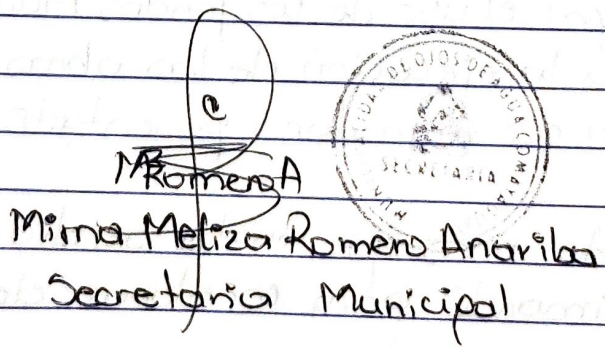 MRomeroA
Mirna Meliza Romero Anariba
Secretaria Municipal
MUNICIPALIDAD DE OJOS DE AGUA COMAYAGUA
SECRETARIA